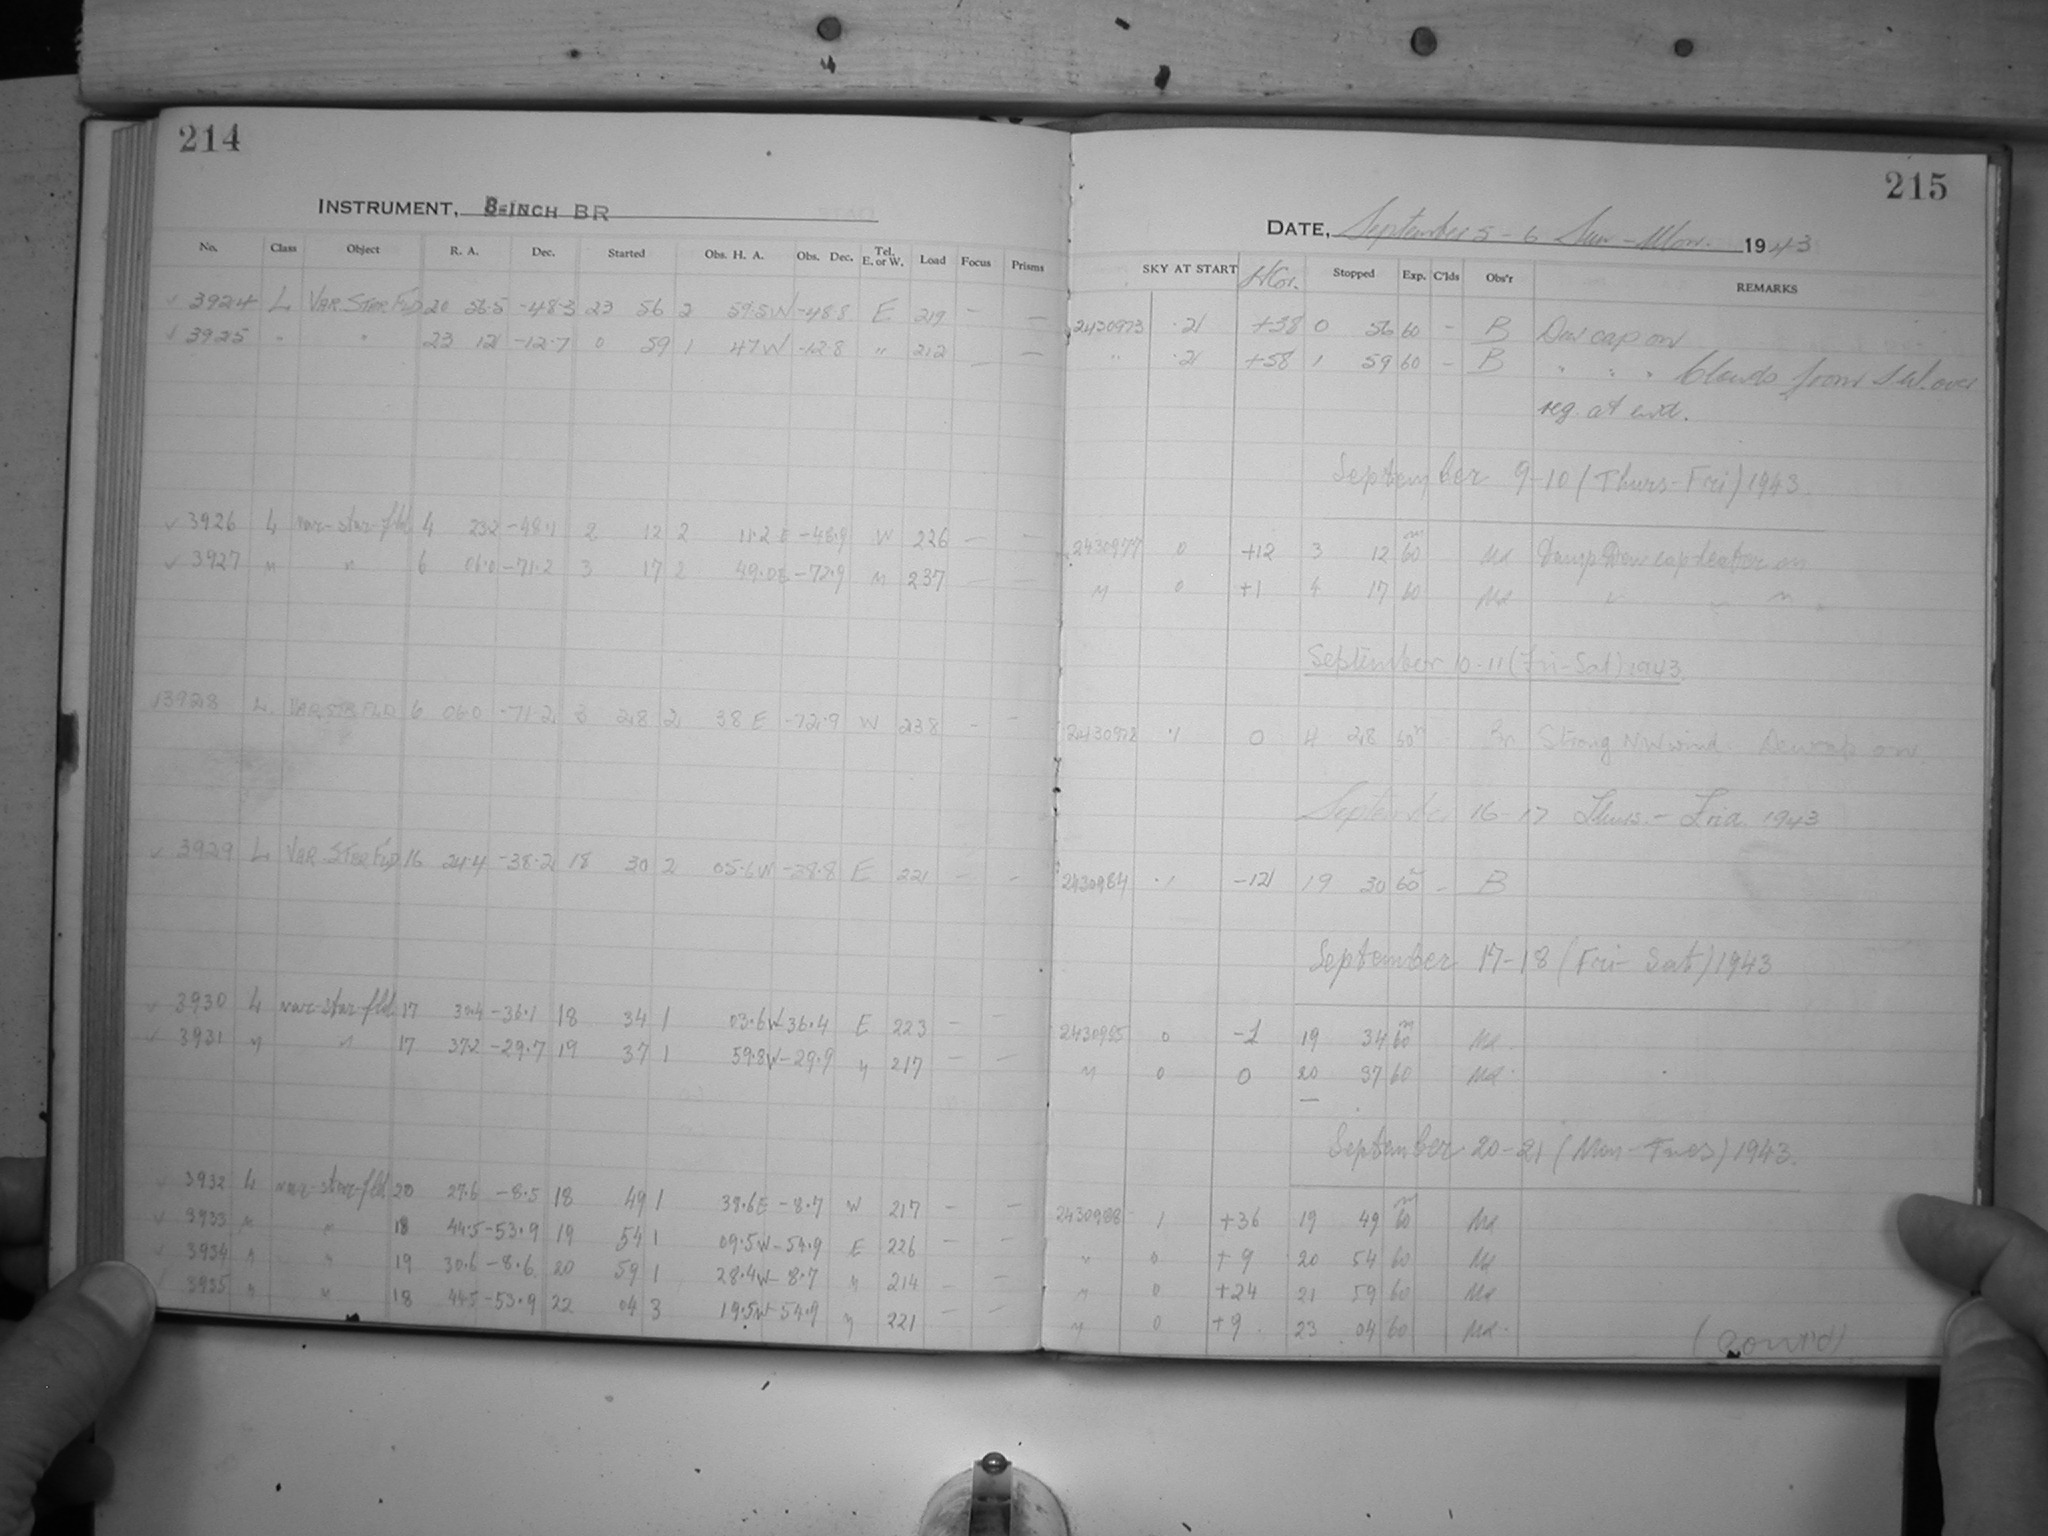 214
INSTRUMENT, 8-INCH BR
No. Class Object R. A. Dec. Started Obs. H. A. Obs. Dec. Tel. E. or W. Load Focus Prisms
3924 L VAR. STAR FLD 20 56.5 -48.3 23 56 2 59.5W -48.8 E 219 — —
3925 " " 23 12 -12.7 0 59 1 47W -12.8 " 212 — —
3926 L var-star-fld 4 23.2 -48.1 2 12 2 11.2 E -48.9 W 226 — —
3927 " " 6 06.0 -71.2 3 17 2 49.0E -72.9 " 237 — —
13928 L. VAR STR FLD 6 06.0 -71.2 3 28 2 38 E -72.9 W 238 - -
3929 L VAR. STAR FLD 16 24.4 -38.2 18 30 2 05.6W -38.8 E 221 — —
3930 L var-star-fld 17 30.4 -36.1 18 34 1 03.6W 36.4 E 223 — —
3931 " " 17 37.2 -29.7 19 37 1 59.8W -29.9 " 217 — —
3932 L var-star-fld 20 27.6 -8.5 18 49 1 39.6E -8.7 W 217 — —
3933 " " 18 44.5 -53.9 19 54 1 09.5W -54.9 E 226 — —
3934 " " 19 30.6 -8.6 20 59 1 28.4W -8.7 " 214 — —
3935 " " 18 44.5 -53.9 22 04 3 19.5W -54.9 " 221 — —
215
DATE, September 5-6 Sun-Mon. 1943
SKY AT START HCor. Stopped Exp. C'lds Obs'r REMARKS
2430973 .2 +38 0 56 60 - B Dew cap on
" .2 +58 1 59 60 - B " " " Clouds from S.W. over
reg. at end.
September 9-10 (Thurs-Fri) 1943
2430977 0 +12 3 12 60m Md Damp Dew cap heater on
" 0 +1 4 17 60 Md " " " "
September 10-11 (Fri-Sat) 1943.
2430978 .1 0 4 28 60m - Strong NW wind. Dewcap on
September 16-17 Thurs.- Frid. 1943
2430984 .1 -12 19 30 60m - B
September 17-18 (Fri-Sat) 1943
2430985 0 -1 19 34 60m Md.
" 0 0 20 37 60 Md.
September 20-21 (Mon-Tues) 1943.
2430988 1 +36 19 49 60m Md
" 0 +9 20 54 60 Md
" 0 +24 21 59 60 Md
" 0 +9 23 04 60 Md.
(Cont'd)